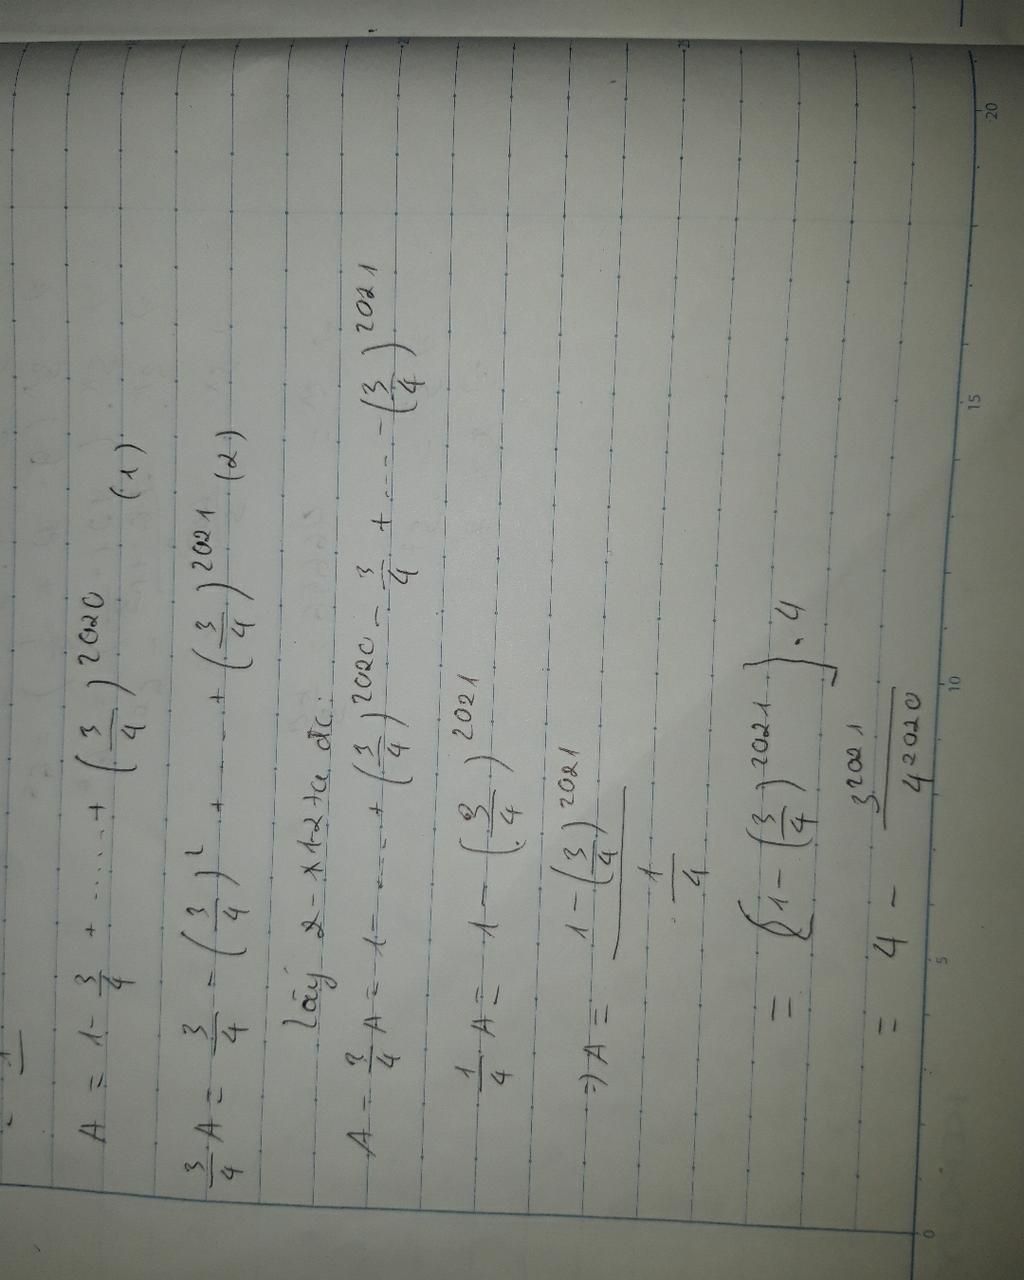 A = 1 - 3/4 + ..... + (3/4)^2020 (1)
3/4 A = 3/4 = (3/4)^2 + ..... + (3/4)^2021 (2)
Lấy
A - 3/4 A = 1 - ..... + (3/4)^2020 - 3/4 + ... - (3/4)^2021
1/4 A = 1 - (3/4)^2021
=> A = 1 - (3/4)^2021
1/4
= [1 - (3/4)^2021] . 4
= 4 - 3^2021/4^2020
0 5 10 15 20